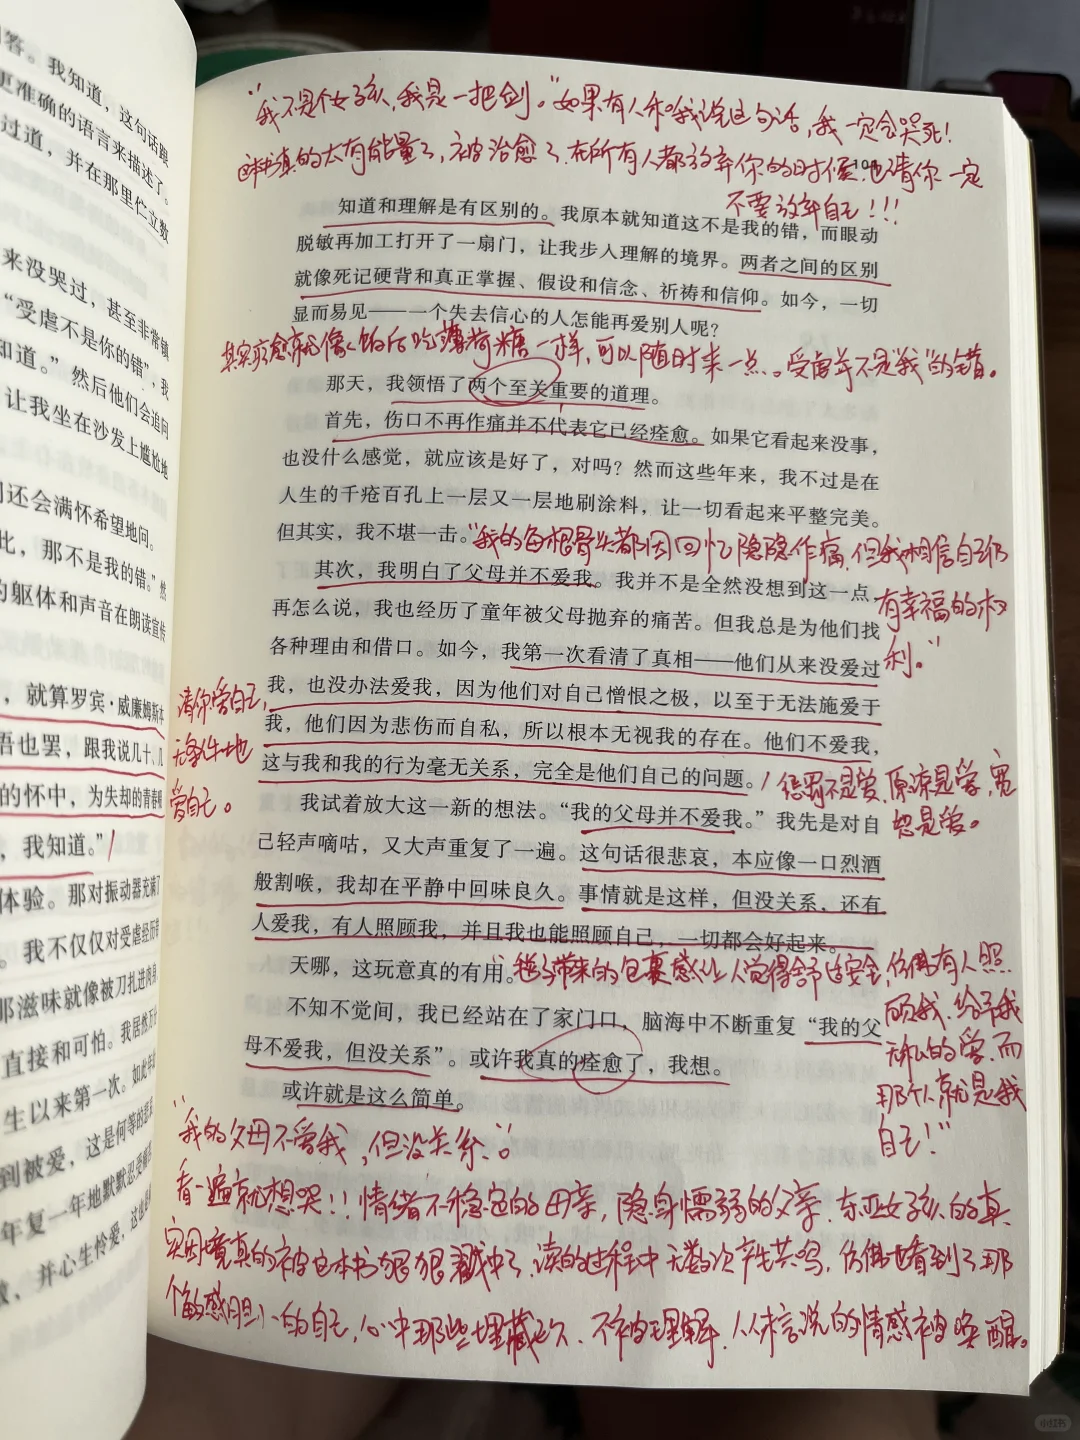 答。我知道，这句话跟
更准确的语言来描述了。
过道，并在那里伫立数
来没哭过，甚至非常镇
“受虐不是你的错”，我
知道。”然后他们会追问
让我坐在沙发上尴尬地
还会满怀希望地问。
此，那不是我的错。”然
的躯体和声音在朗读宣传
，就算罗宾·威廉姆斯本
吾也罢，跟我说几十、几
的怀中，为失却的青春哦
，我知道。”
体验。那对振动器充满了
。我不仅仅对受虐经历带
那滋味就像被刀扎进肉身
直接和可怕。我居然万计
生以来第一次。如此年
到被爱，这是何等的悲哀
年复一年地默默忍受
，并心生怜爱，这也是
“我不是个女孩，我是一把剑。”如果有人和我说这句话，我一定会哭死！
这本书真的太有能量了，被治愈了，在所有人都放弃你的时候，也请你一定
不要放弃自己！！！
知道和理解是有区别的。我原本就知道这不是我的错，而眼动
脱敏再加工打开了一扇门，让我步入理解的境界。两者之间的区别
就像死记硬背和真正掌握、假设和信念、祈祷和信仰。如今，一切
显而易见——一个失去信心的人怎能再爱别人呢？
其实疗愈就像饭后吃薄荷糖一样，可以随时来一点。受虐并不是“我”的错。
那天，我领悟了两个至关重要的道理。
首先，伤口不再作痛并不代表它已经痊愈。如果它看起来没事，
也没什么感觉，就应该是好了，对吗？然而这些年来，我不过是在
人生的千疮百孔上一层又一层地刷涂料，让一切看起来平整完美。
但其实，我不堪一击。
“我的每根骨头都因回忆隐隐作痛，但我相信自己仍
有幸福的权
利。”
其次，我明白了父母并不爱我。我并不是全然没想到这一点，
再怎么说，我也经历了童年被父母抛弃的痛苦。但我总是为他们找
各种理由和借口。如今，我第一次看清了真相——他们从来没爱过
我，也没办法爱我，因为他们对自己憎恨之极，以至于无法施爱于
我，他们因为悲伤而自私，所以根本无视我的存在。他们不爱我，
这与我和我的行为毫无关系，完全是他们自己的问题。
请你爱自己，
无条件地
爱自己。
惩罚不是爱，原谅是爱，宽
恕是爱。
我试着放大这一新的想法。“我的父母并不爱我。”我先是对自
己轻声嘀咕，又大声重复了一遍。这句话很悲哀，本应像一口烈酒
般割喉，我却在平静中回味良久。事情就是这样，但没关系，还有
人爱我，有人照顾我，并且我也能照顾自己，一切都会好起来。
天哪，这玩意真的有用。
“毯子带来的包裹感让人觉得舒适安全，仿佛有人照
顾我，给予我
所以的爱，而
那个人就是我
自己！”
不知不觉间，我已经站在了家门口，脑海中不断重复“我的父
母不爱我，但没关系”。或许我真的痊愈了，我想。
或许就是这么简单。
“我的父母不爱我，但没关系。”
看一遍就想哭！！情绪不稳定的母亲，隐身懦弱的父亲，东亚女孩的真
实困境真的被这本书狠狠戳中了，读的过程中无数次产生共鸣，仿佛也看到了那
个敏感胆小的自己，心中那些埋藏已久、不被理解、从未言说的情感被唤醒。
小红书